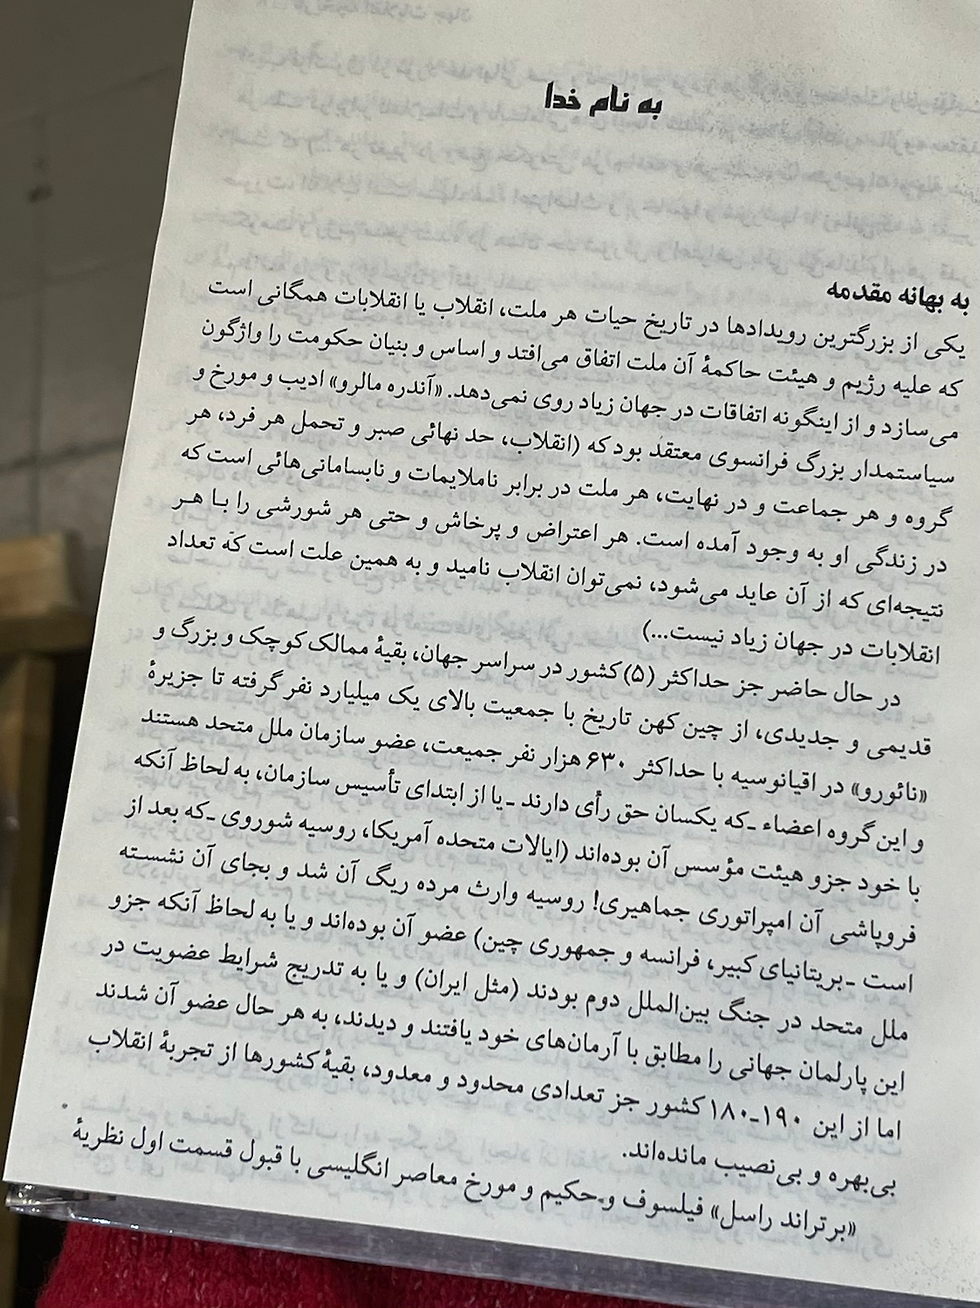 به نام خدا
به بهانه مقدمه
یکی از بزرگترین رویدادها در تاریخ حیات هر ملت، انقلاب یا انقلابات همگانی است
که علیه رژیم و هیئت حاکمهٔ آن ملت اتفاق می‌افتد و اساس و بنیان حکومت را واژگون
می‌سازد و از اینگونه اتفاقات در جهان زیاد روی نمی‌دهد. «آندره مالرو» ادیب و مورخ و
سیاستمدار بزرگ فرانسوی معتقد بود که (انقلاب، حد نهائی صبر و تحمل هر فرد، هر
گروه و هر جماعت و در نهایت، هر ملت در برابر ناملایمات و نابسامانی‌هائی است که
در زندگی او به وجود آمده است. هر اعتراض و پرخاش و حتی هر شورشی را با هر
نتیجه‌ای که از آن عاید می‌شود، نمی‌توان انقلاب نامید و به همین علت است که تعداد
انقلابات در جهان زیاد نیست...)
در حال حاضر جز حداکثر (۵) کشور در سراسر جهان، بقیهٔ ممالک کوچک و بزرگ و
قدیمی و جدیدی، از چین کهن تاریخ با جمعیت بالای یک میلیارد نفر گرفته تا جزیرهٔ
«نائورو» در اقیانوسیه با حداکثر ۶۳۰ هزار نفر جمیعت، عضو سازمان ملل متحد هستند
و این گروه اعضاء ـ که یکسان حق رأی دارند ـ یا از ابتدای تأسیس سازمان، به لحاظ آنکه
با خود جزو هیئت مؤسس آن بوده‌اند (ایالات متحده آمریکا، روسیه شوروی ـ که بعد از
فروپاشی آن امپراتوری جماهیری! روسیه وارث مرده ریگ آن شد و بجای آن نشسته
است ـ بریتانیای کبیر، فرانسه و جمهوری چین) عضو آن بوده‌اند و یا به لحاظ آنکه جزو
ملل متحد در جنگ بین‌الملل دوم بودند (مثل ایران) و یا به تدریج شرایط عضویت در
این پارلمان جهانی را مطابق با آرمان‌های خود یافتند و دیدند، به هر حال عضو آن شدند
اما از این ۱۹۰ـ۱۸۰ کشور جز تعدادی محدود و معدود، بقیهٔ کشورها از تجربهٔ انقلاب
بی‌بهره و بی‌نصیب مانده‌اند.
«برتراند راسل» فیلسوف و حکیم و مورخ معاصر انگلیسی با قبول قسمت اول نظریهٔ